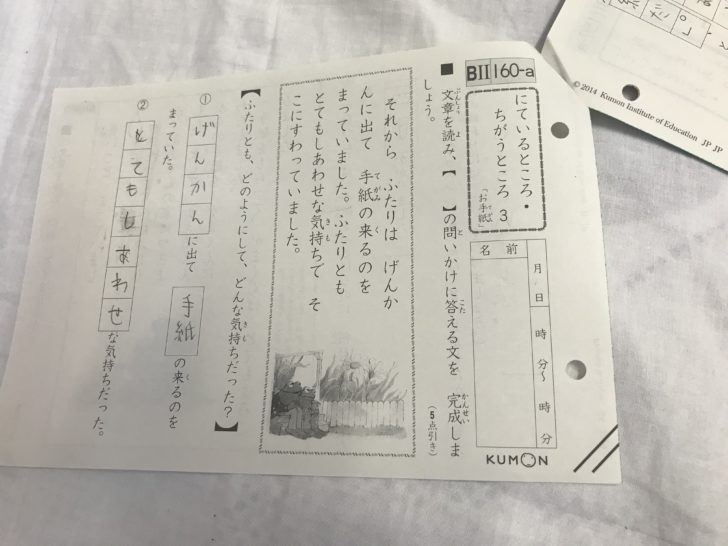 BII 160-a
にているところ・
ちがうところ 3
「お手紙」
名前
月 日 時 分〜 時 分
KUMON
■ 文章を読み、【 】の問いかけに答える文を 完成しま
しょう。
(5点引き)
それから ふたりは げんか
んに出て 手紙の来るのを
まっていました。ふたりとも
とてもしあわせな気持ちで そ
こにすわっていました。
【ふたりとも、どのようにして、どんな気持ちだった?】
① げんかんに出て 手紙の来るのを
まっていた。
② とてもしあわせな気持ちだった。
© 2014 Kumon Institute of Education JP JP